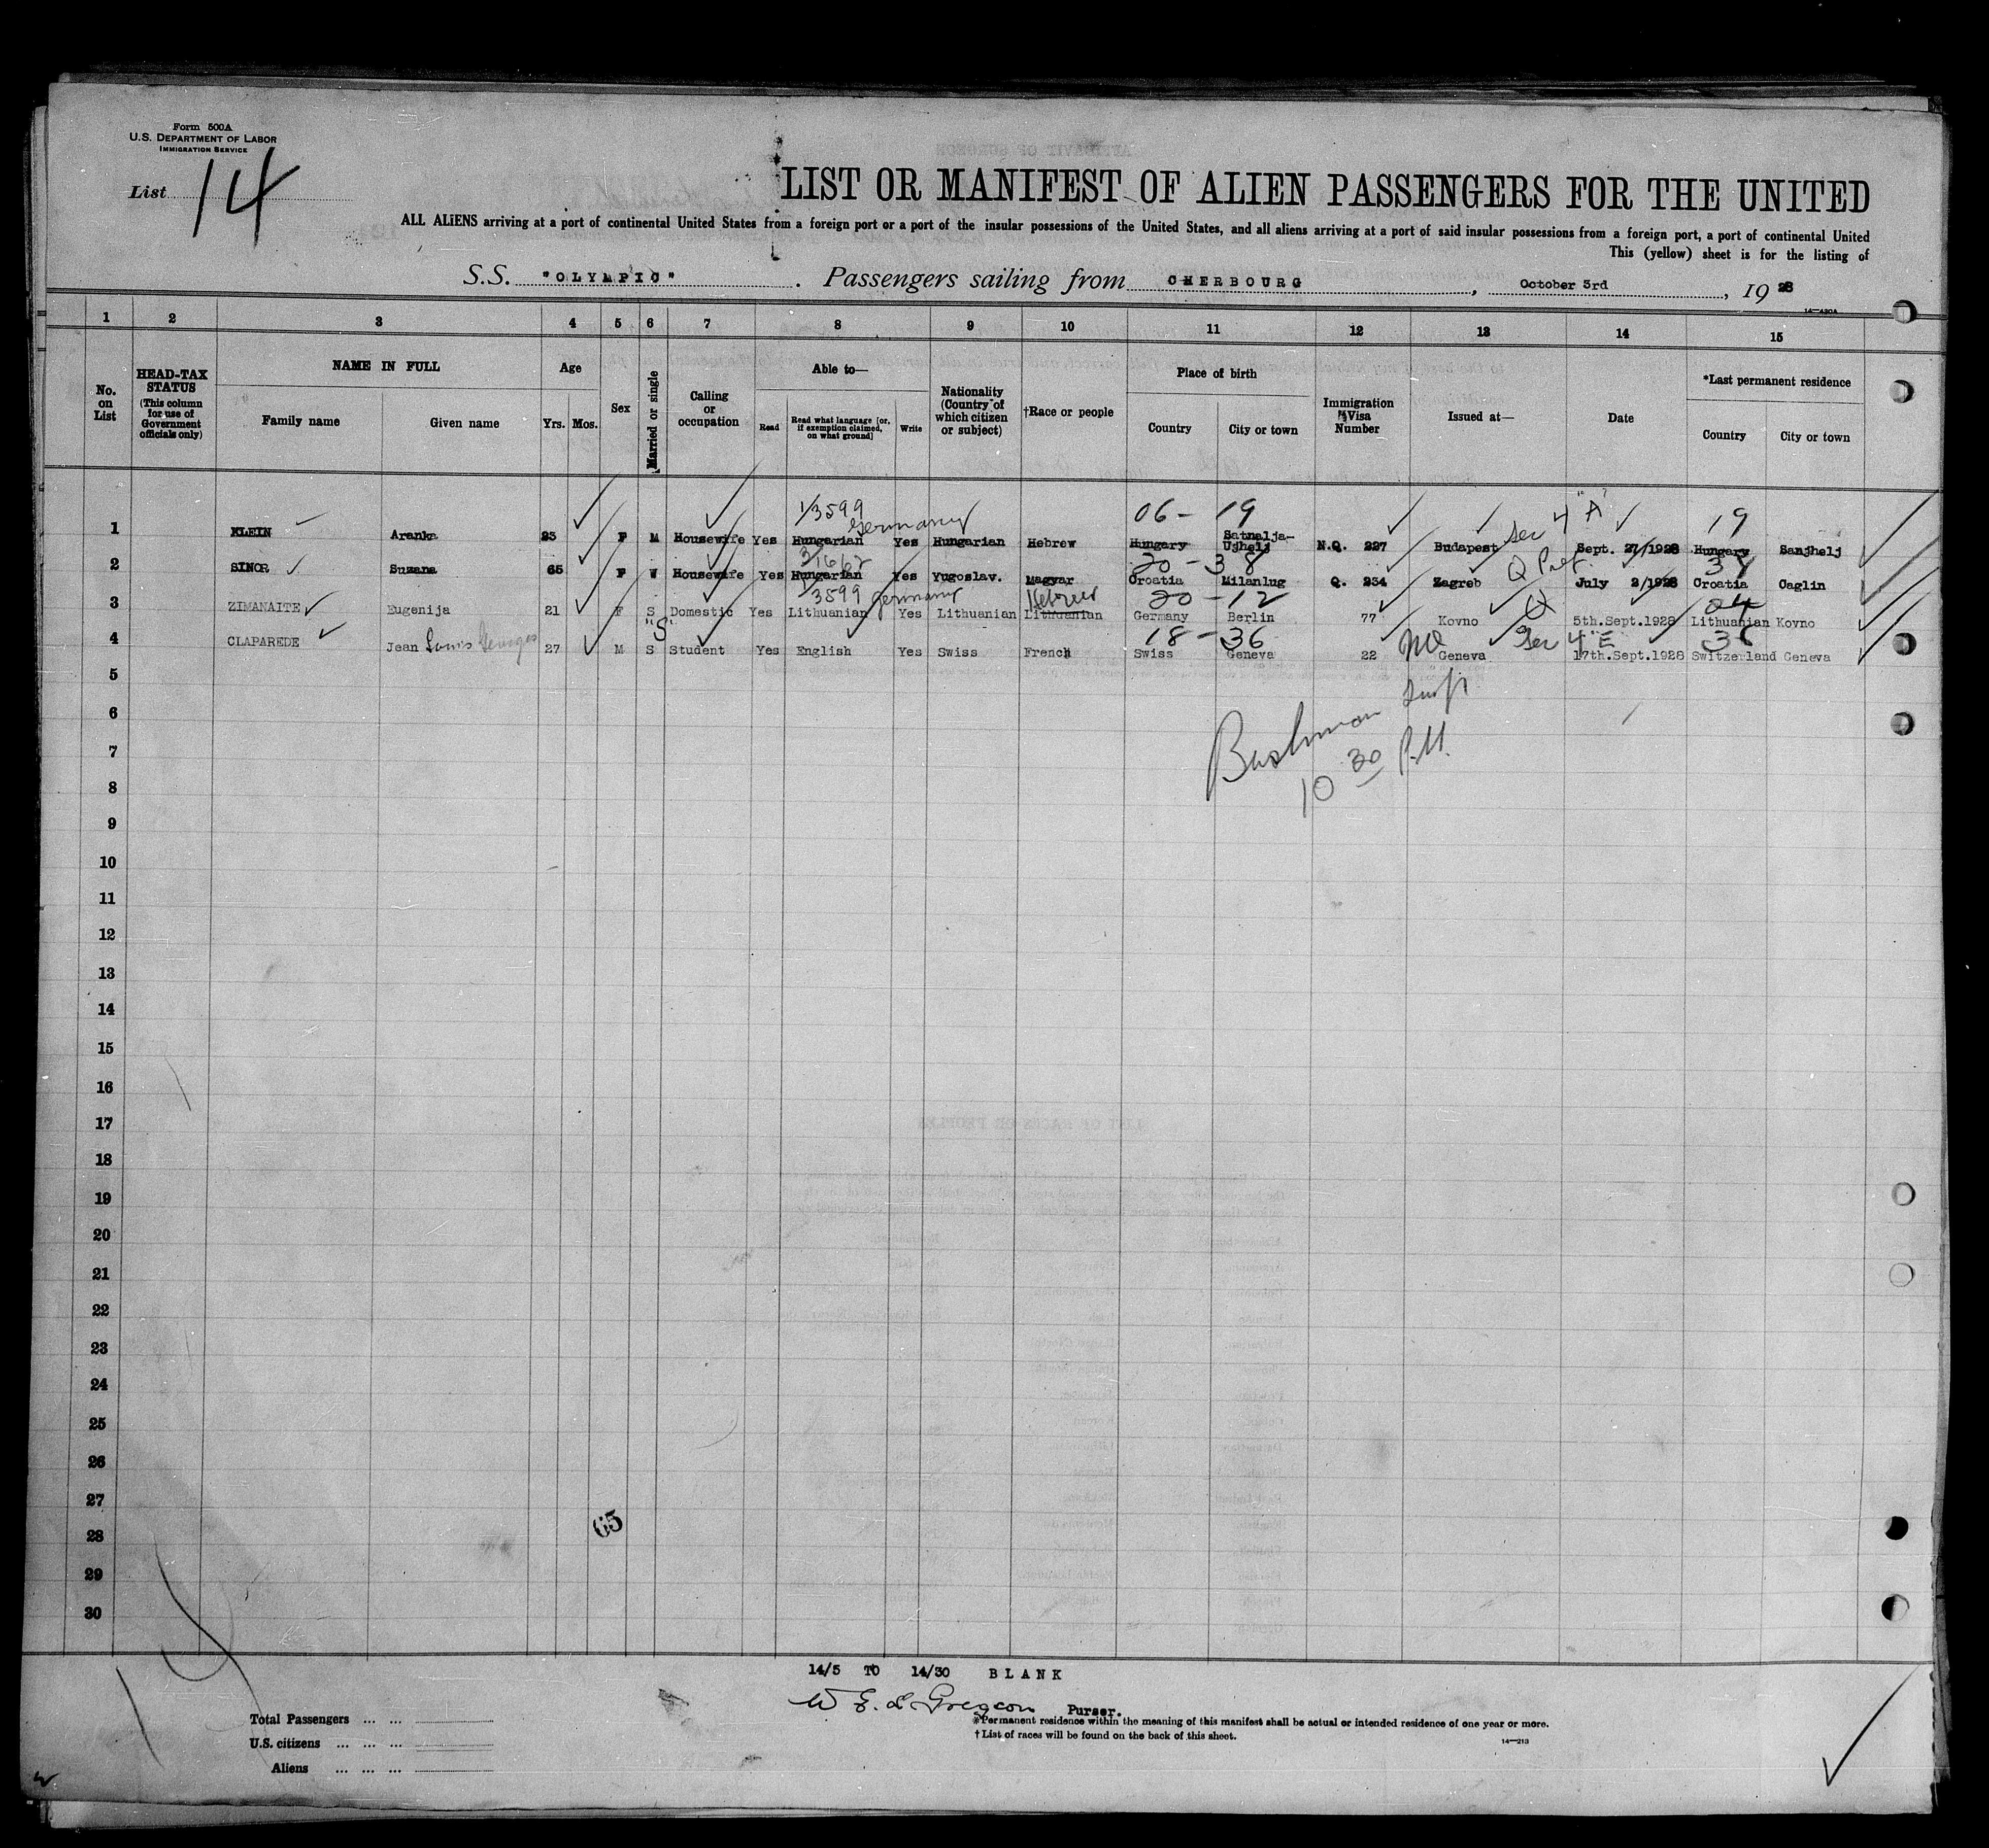 Form 500A
U.S. DEPARTMENT OF LABOR
IMMIGRATION SERVICE
List 14
LIST OR MANIFEST OF ALIEN PASSENGERS FOR THE UNITED
ALL ALIENS arriving at a port of continental United States from a foreign port or a port of the insular possessions of the United States, and all aliens arriving at a port of said insular possessions from a foreign port, a port of continental United
This (yellow) sheet is for the listing of
S.S. "OLYMPIC" . Passengers sailing from CHERBOURG , October 3rd , 19 28
14—430A
1 2 3 4 5 6 7 8 9 10 11 12 13 14 15
No. on List
HEAD-TAX STATUS (This column for use of Government officials only)
NAME IN FULL
Family name Given name
Age
Yrs. Mos.
Sex
Married or single
Calling or occupation
Able to—
Read Read what language [or, if exemption claimed, on what ground] Write
Nationality (Country of which citizen or subject)
†Race or people
Place of birth
Country City or town
Immigration Visa Number
Issued at—
Date
*Last permanent residence
Country City or town
1/3599 Germany 06- 19 Sec 4 "A" 19
1 KLEIN Aranka 23 F M Housewife Yes Hungarian Yes Hungarian Hebrew Hungary Satnalja-Ujhelj N.Q. 227 Budapest Sept. 27/1928 Hungary Sanjhelj
20-38 Q Pref.
2 SINOR Suzana 65 F W Housewife Yes Hungarian Yes Yugoslav. Magyar Croatia Milanlug Q. 234 Zagreb July 2/1928 Croatia Caglin
3599 Germany Hebrew 20-12 Q 24
3 ZIMANAITE Eugenija 21 F S Domestic Yes Lithuanian Yes Lithuanian Lithuanian Germany Berlin 77 Kovno 5th.Sept.1928 Lithuanian Kovno
"S" 18-36 NQ Sec 4 E 36
4 CLAPAREDE Jean Louis Georges 27 M S Student Yes English Yes Swiss French Swiss Geneva 22 Geneva 17th.Sept.1928 Switzerland Geneva
5
6
Bushman Insp.
7
10 30 P.M.
8
9
10
11
12
13
14
15
16
17
18
19
20
21
22
23
24
25
26
27
65
28
29
30
14/5 TO 14/30 BLANK
Purser.
*Permanent residence within the meaning of this manifest shall be actual or intended residence of one year or more.
†List of races will be found on the back of this sheet.
14—213
Total Passengers ... ...
U.S. citizens ... ... ...
Aliens ... ... ...